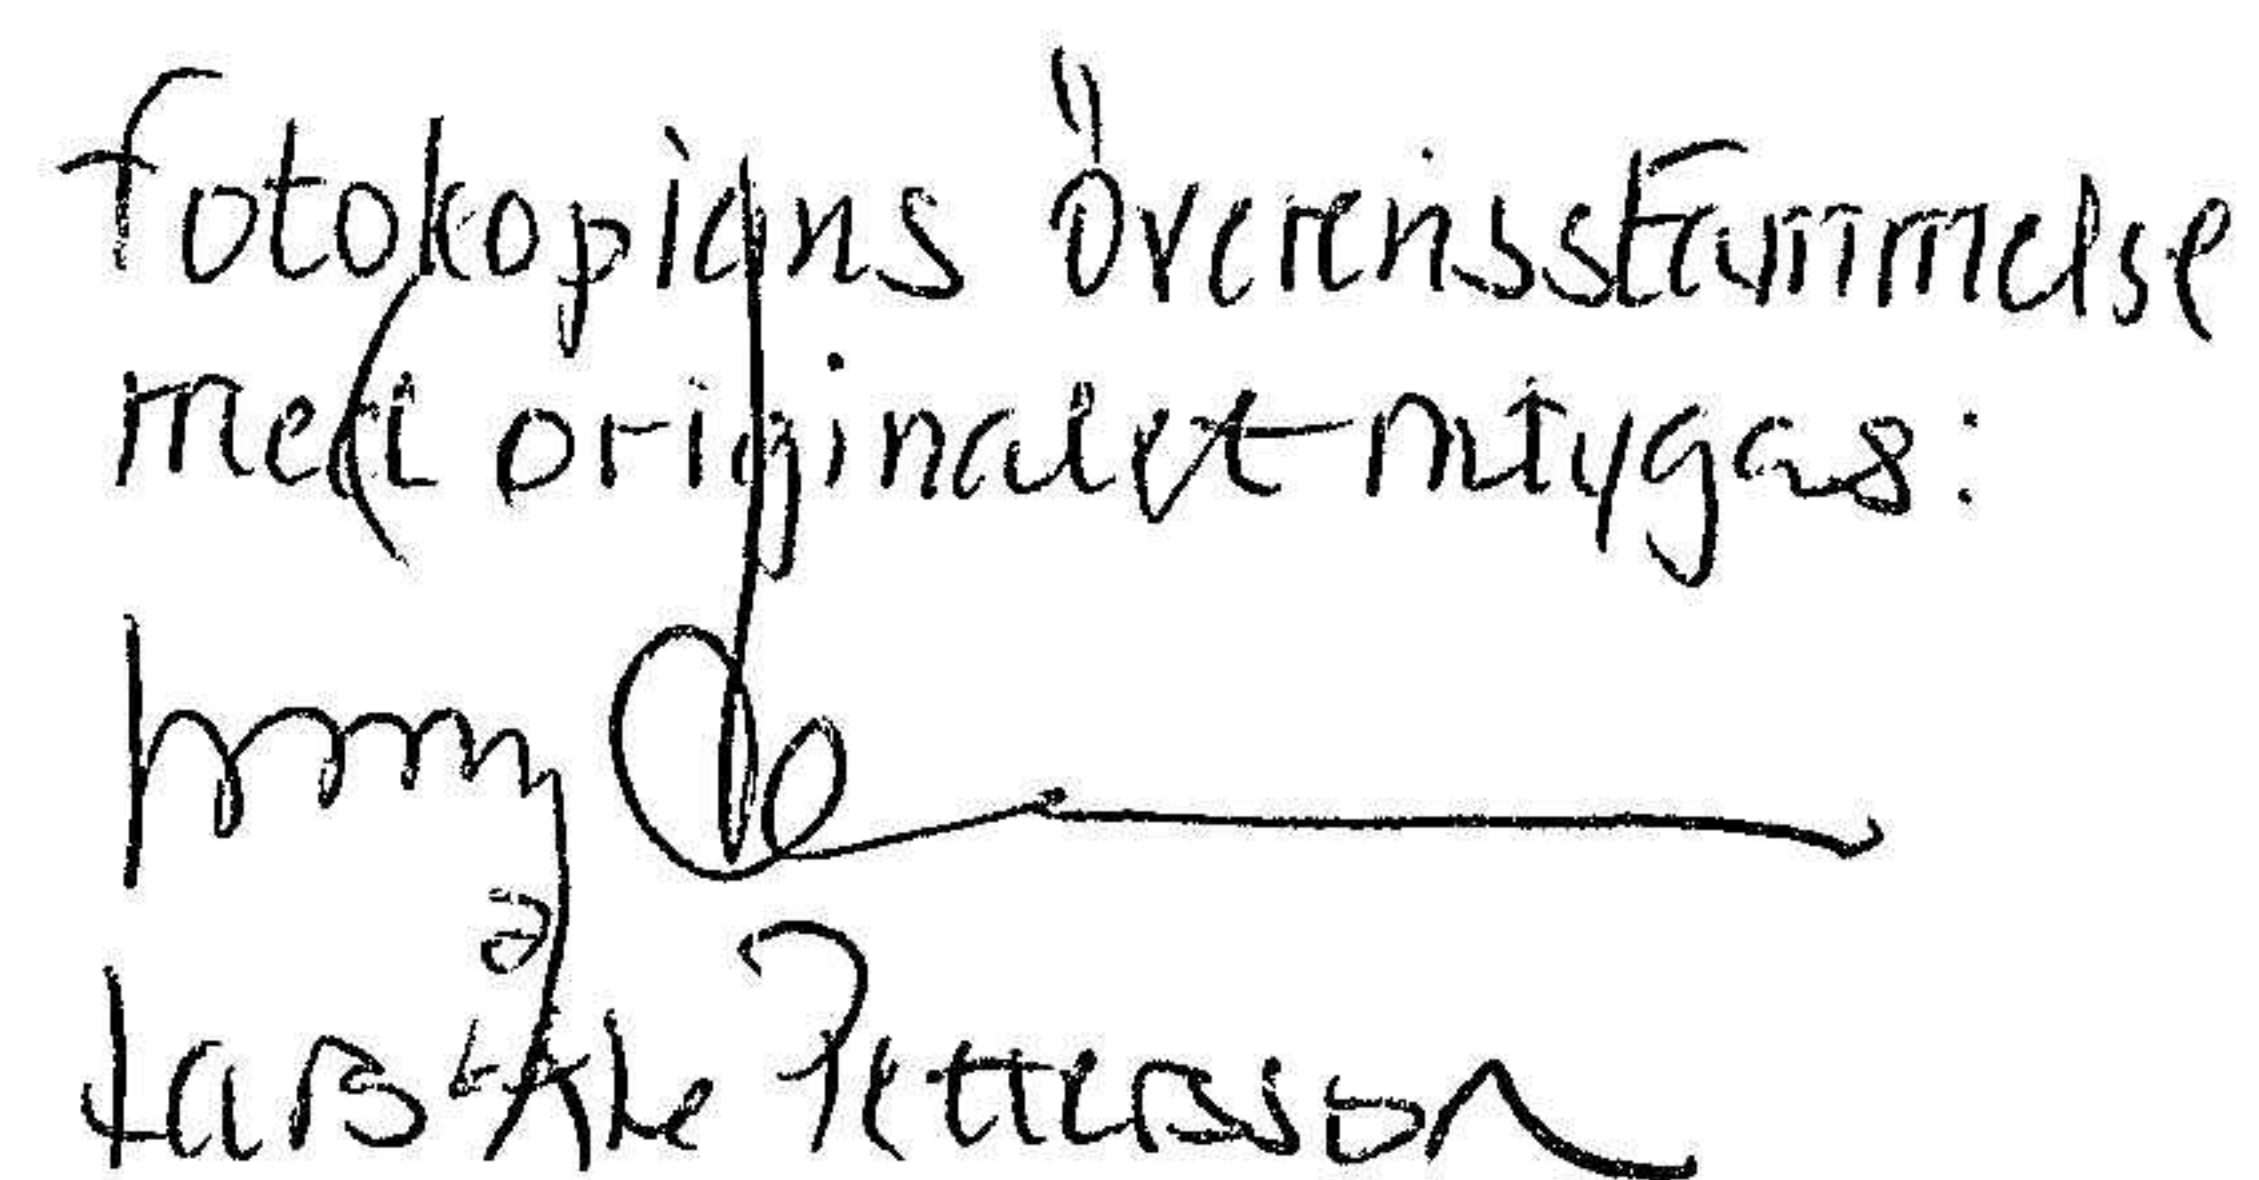 Fotokopians överensstämmelse
med originalet intygas:
Lars Åke Pettersson